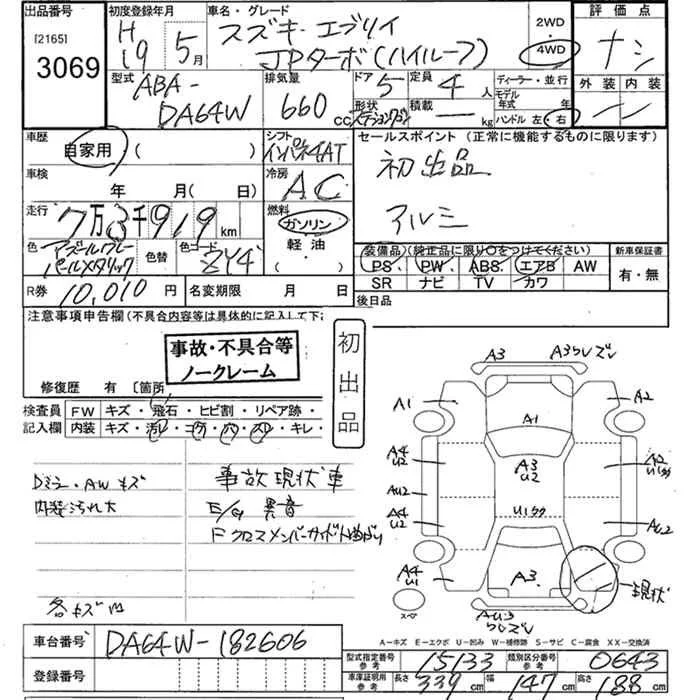 出品番号 [2165] 3069
初度登録年月 H19 5月
車名・グレード スズキ エブリイ
JPターボ(ハイルーフ)
2WD 4WD
評価点 ナシ
外装 内装
型式 ABA-
DA64W
排気量 660 CC
ドア 5 定員 4人
形状 ステーションワゴン 積載 ー kg
ディーラー・並行
モデル年式 年
ハンドル 左・右
車歴 自家用 ( )
シフト インパネ4AT
セールスポイント (正常に機能するものに限ります)
初出品
アルミ
車検 年 月(日)
冷房 AC
走行 7万3千919km
燃料 ガソリン
軽油
( )
色 アズールグレー
パールメタリック
色替
色コード ZY4
装備品 (純正品に限り○をつけてください)
PS PW ABS エアB AW
SR ナビ TV カワ
新車保証書 有・無
R券 10,010円
名変期限 月 日
後日品
注意事項申告欄 (不具合内容等は具体的に記入して下
事故・不具合等
ノークレーム
初出品
修復歴 有 〔箇所
検査員 FW キズ・飛石・ヒビ割・リペア跡・
記入欄 内装 キズ・汚レ・コゲ・穴・スレ・キレ・
Dミラー・AWキズ
内装汚れ大
各キズ凹
事故現状車
E/G 異音
Fクロスメンバーサイド凹曲がり
A3
A3ワレズレ
A1
A2
A1
A4
U2
A3
U2
A2
U1クク
AU2
U1クク
A4
U2
AU2
A4
U1
A3
現状
スペア
AU3
ワレズレ
A-キズ E-エクボ U-凹み W-補修跡 S-サビ C-腐食 XX-交換済
車台番号 DA64W-182606
登録番号
型式指定番号 参考 15133 類別区分番号 参考 0643
車庫証明用 参考 長さ 339cm 幅 147cm 高さ 188cm